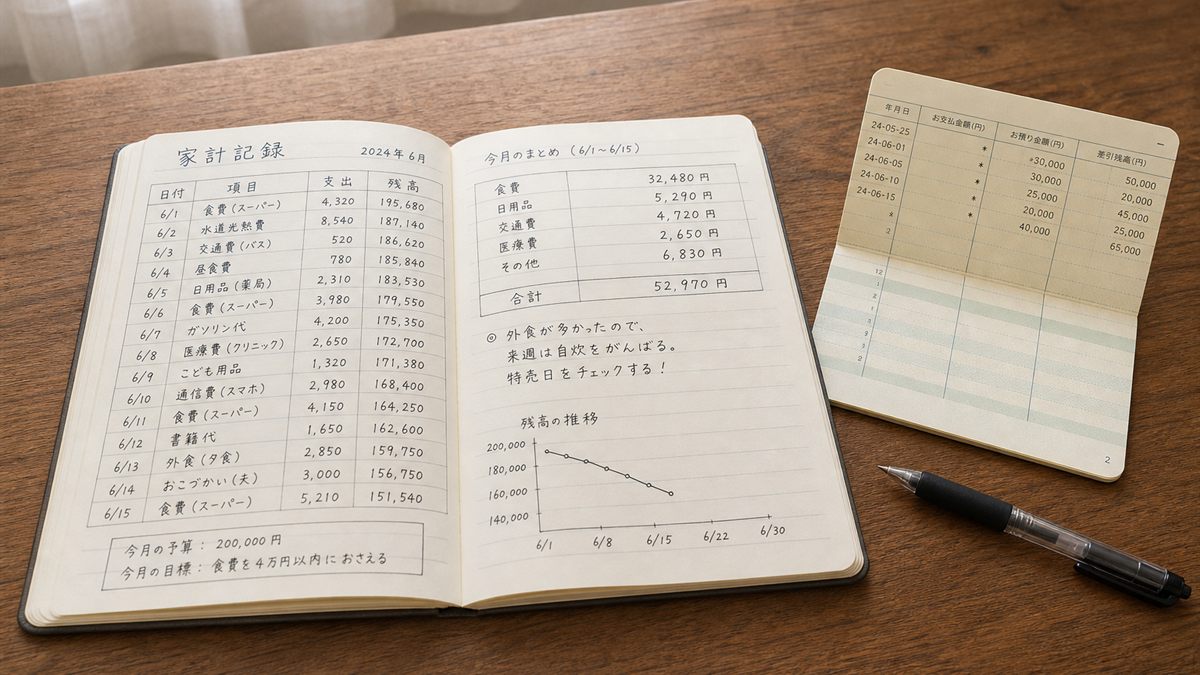 家計記録 2024年6月
日付 項目 支出 残高
6/1 食費(スーパー) 4,320 195,680
6/2 水道光熱費 8,540 187,140
6/3 交通費(バス) 520 186,620
6/4 昼食費 780 185,840
6/5 日用品(薬局) 2,310 183,530
6/6 食費(スーパー) 3,980 179,550
6/7 ガソリン代 4,200 175,350
6/8 医療費(クリニック) 2,650 172,700
6/9 こども用品 1,320 171,380
6/10 通信費(スマホ) 2,980 168,400
6/11 食費(スーパー) 4,150 164,250
6/12 書籍代 1,650 162,600
6/13 外食(夕食) 2,850 159,750
6/14 おこづかい(夫) 3,000 156,750
6/15 食費(スーパー) 5,210 151,540
今月の予算: 200,000円
今月の目標: 食費を4万円以内におさえる
今月のまとめ (6/1~6/15)
食費 32,480円
日用品 5,290円
交通費 4,720円
医療費 2,650円
その他 6,830円
合計 52,970円
◎ 外食が多かったので、
来週は自炊をがんばる。
特売日をチェックする!
残高の推移
200,000
180,000
160,000
140,000
6/1 6/8 6/15 6/22 6/30
年月日 お支払金額(円) お預り金額(円) 差引残高(円)
24-05-25 * *30,000 50,000
24-06-01 * 30,000 20,000
24-06-05 * 25,000 45,000
24-06-10 * 20,000 25,000
24-06-15 40,000 65,000
*
2
12
1
2
2
2